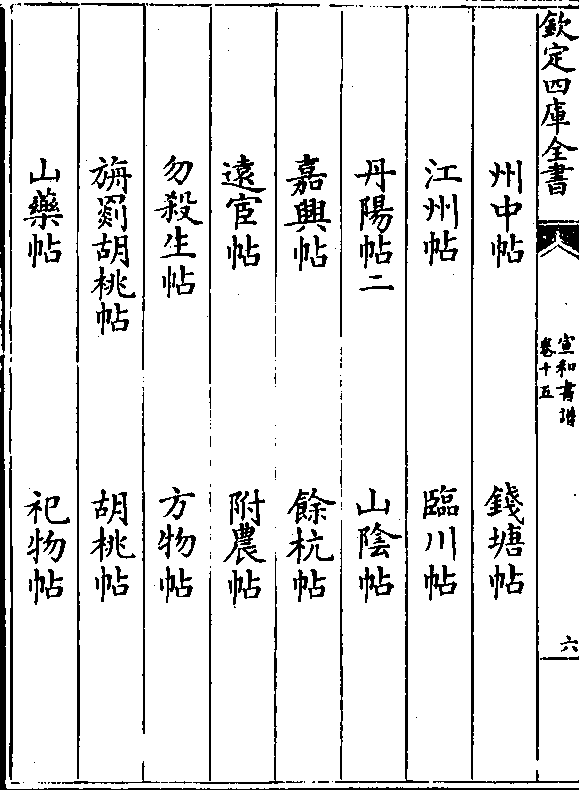 欽定四庫全書
宣和書譜
卷十五
六
州中帖 錢塘帖
江州帖 臨川帖
丹陽帖二 山陰帖
嘉興帖 餘杭帖
遠宦帖 附農帖
勿殺生帖 方物帖
旃罽胡桃帖 胡桃帖
山藥帖 祀物帖